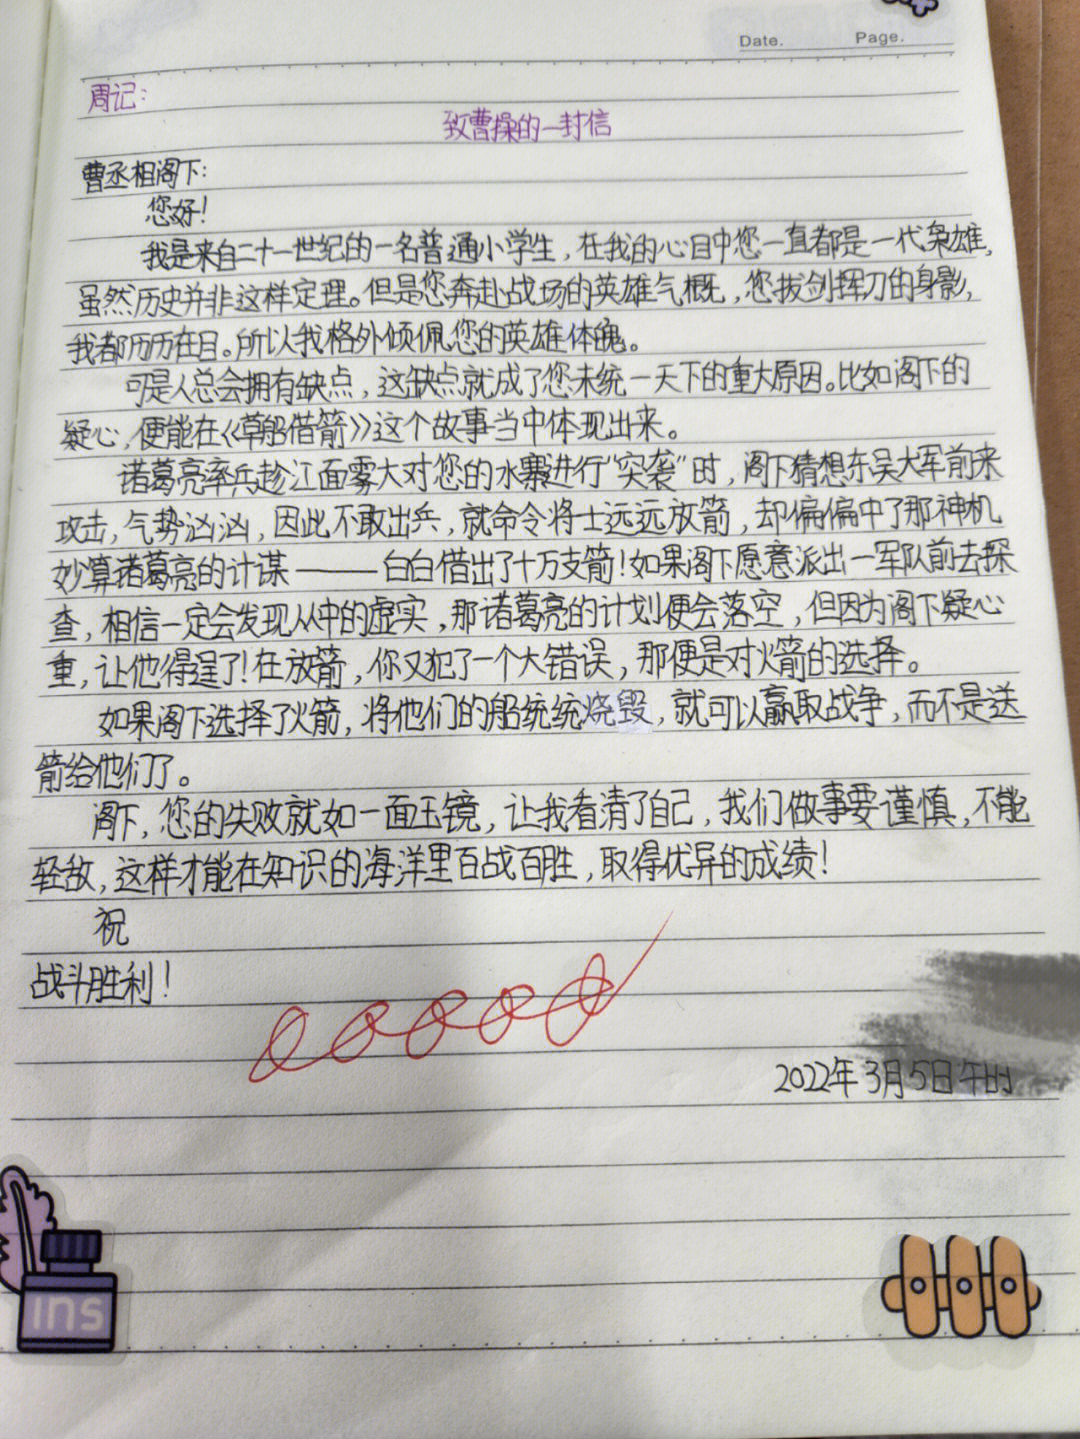 Date. Page.
周记:
致曹操的一封信
曹丞相阁下:
您好!
我是来自二十一世纪的一名普通小学生,在我的心目中您一直都是一代枭雄,
虽然历史并非这样定理。但是您奔赴战场的英雄气概,您拔剑挥刀的身影,
我都历历在目。所以我格外倾佩您的英雄体魄。
可是人总会拥有缺点,这缺点就成了您未统一天下的重大原因。比如阁下的
疑心,便能在《草船借箭》这个故事当中体现出来。
诸葛亮率兵趁江面雾大对您的水寨进行“突袭”时,阁下猜想东吴大军前来
攻击,气势汹汹,因此不敢出兵,就命令将士远远放箭,却偏偏中了那神机
妙算诸葛亮的计谋——白白借出了十万支箭!如果阁下愿意派出一军队前去探
查,相信一定会发现从中的虚实,那诸葛亮的计划便会落空,但因为阁下疑心
重,让他得逞了!在放箭,你又犯了一个大错误,那便是对火箭的选择。
如果阁下选择了火箭,将他们的船统统烧毁,就可以赢取战争,而不是送
箭给他们了。
阁下,您的失败就如一面玉镜,让我看清了自己,我们做事要谨慎,不能
轻敌,这样才能在知识的海洋里百战百胜,取得优异的成绩!
祝
战斗胜利!
2022年3月5日午时
ins